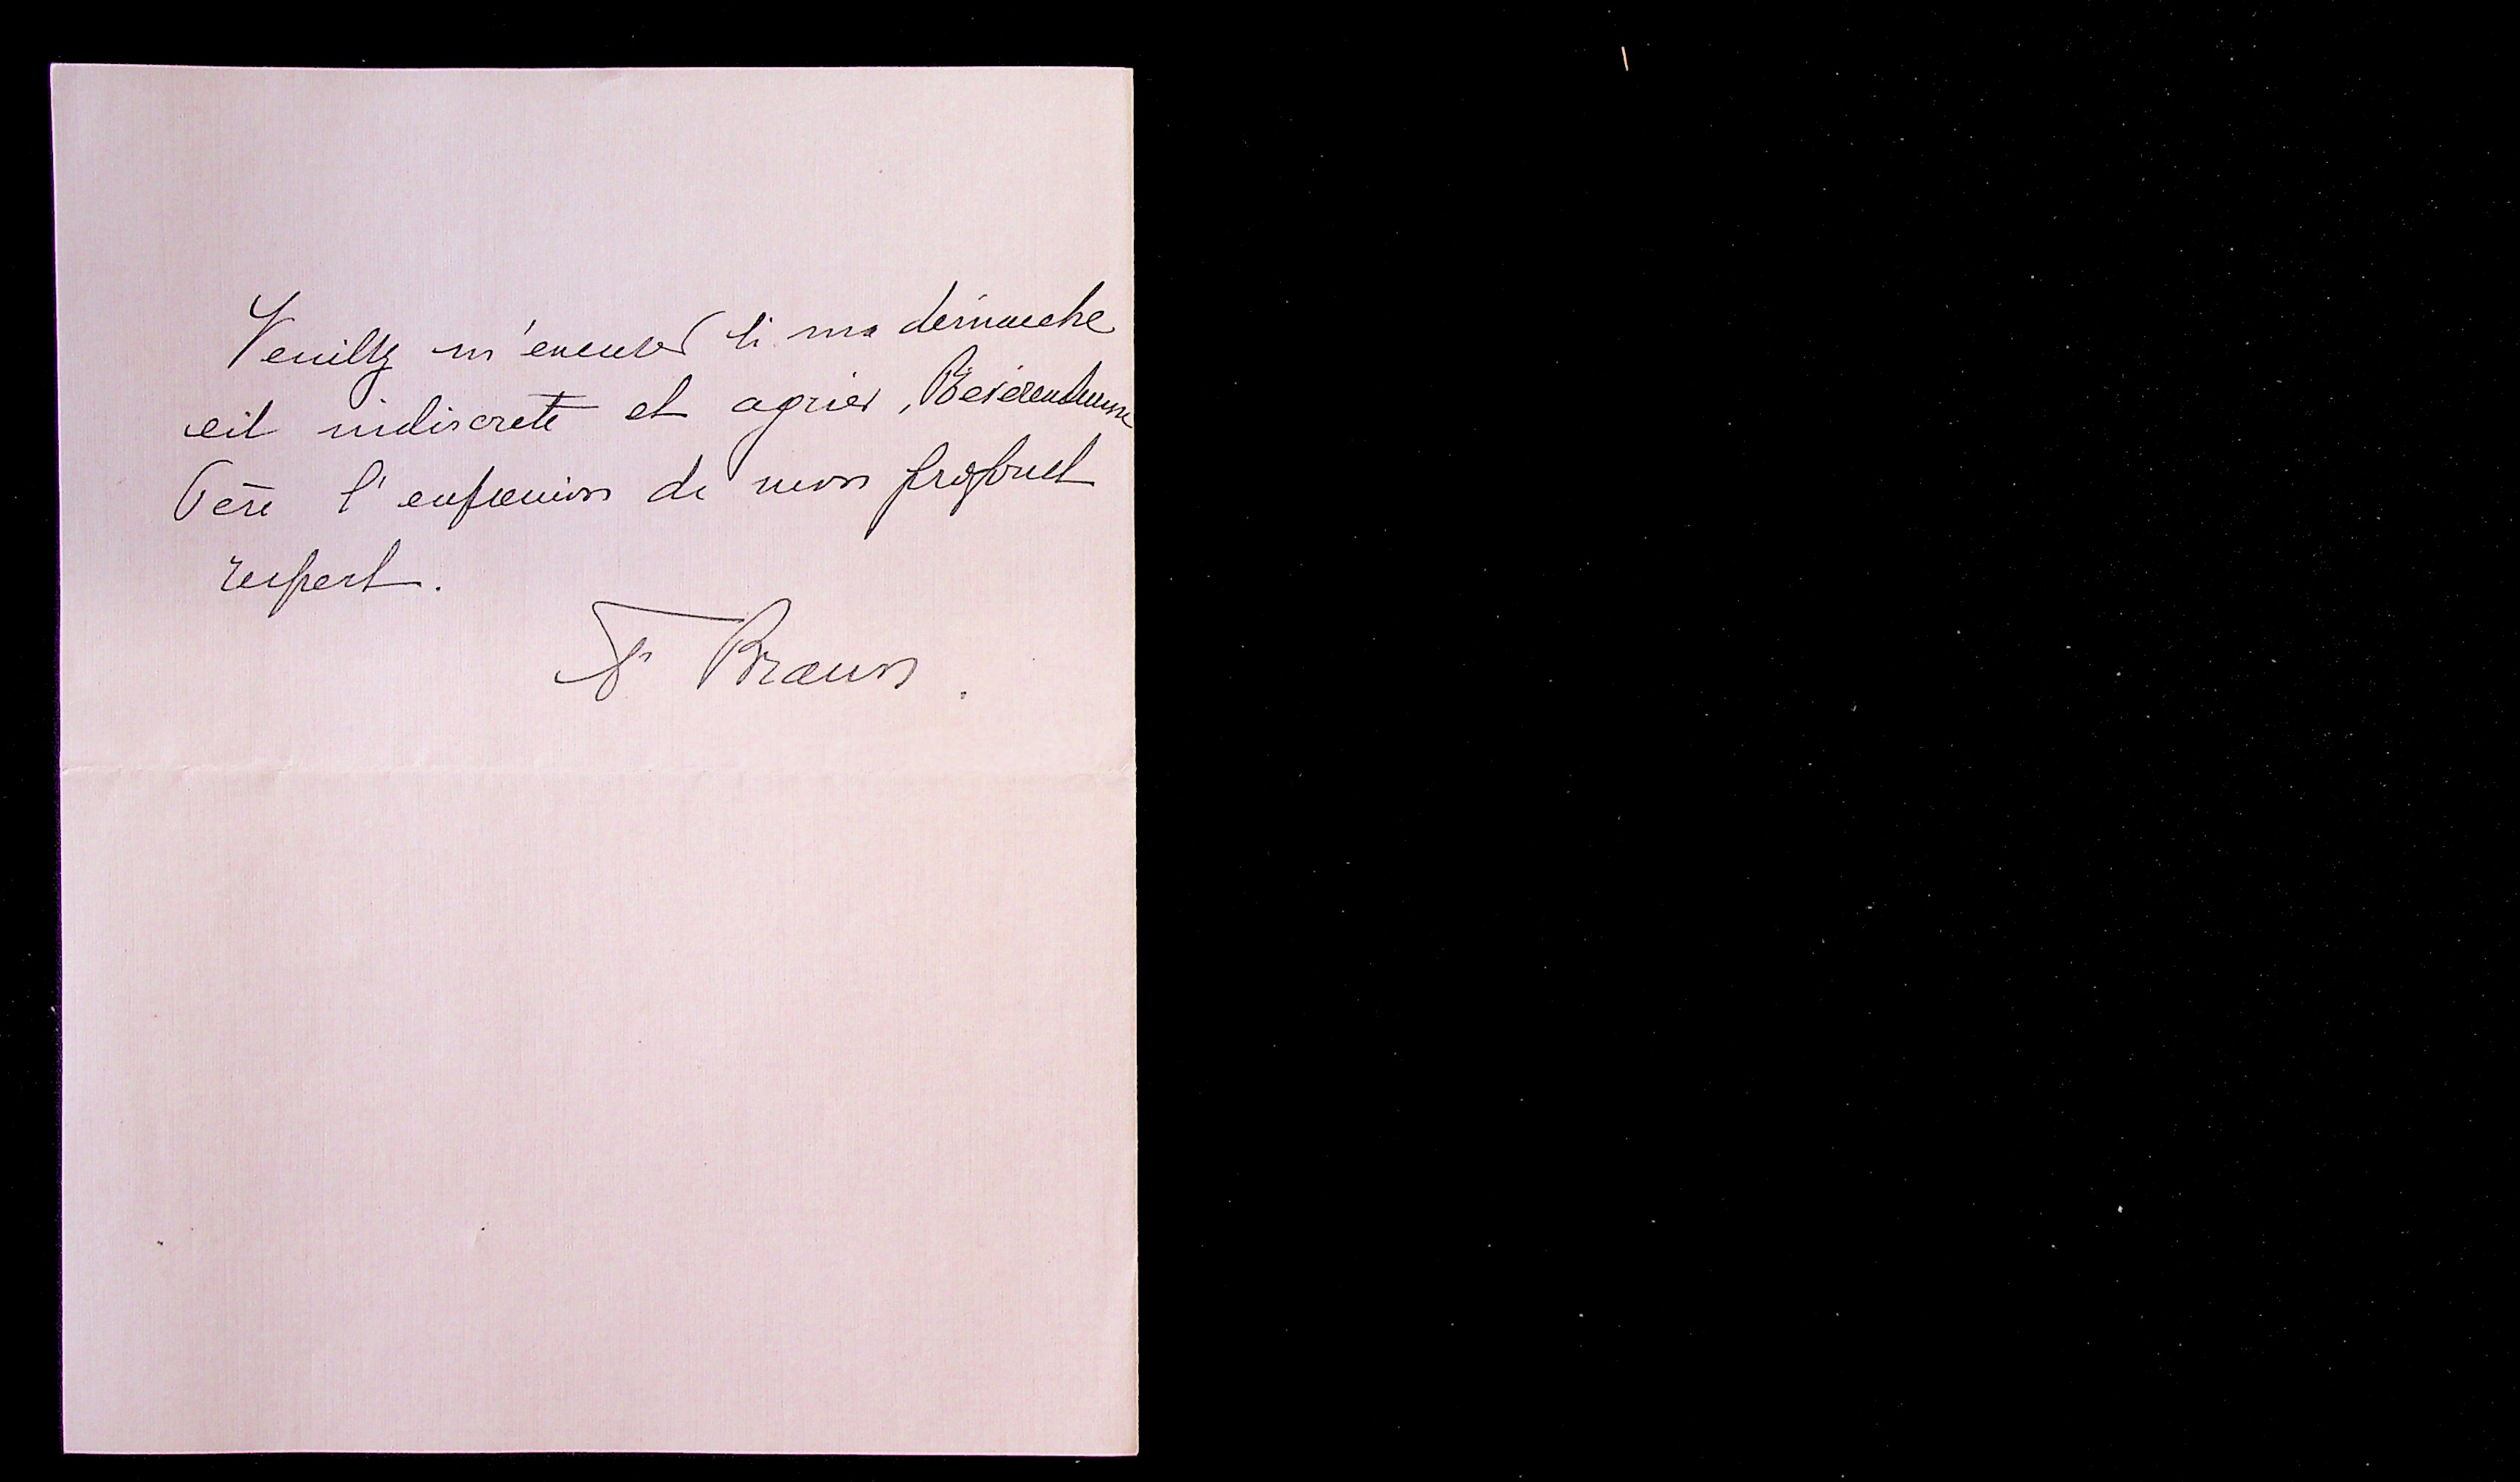 Veuillez m'excuser si ma démarche
est indiscrète et agréer, Révérendissime
Père l'expression de mon profond
respect.
Braun.